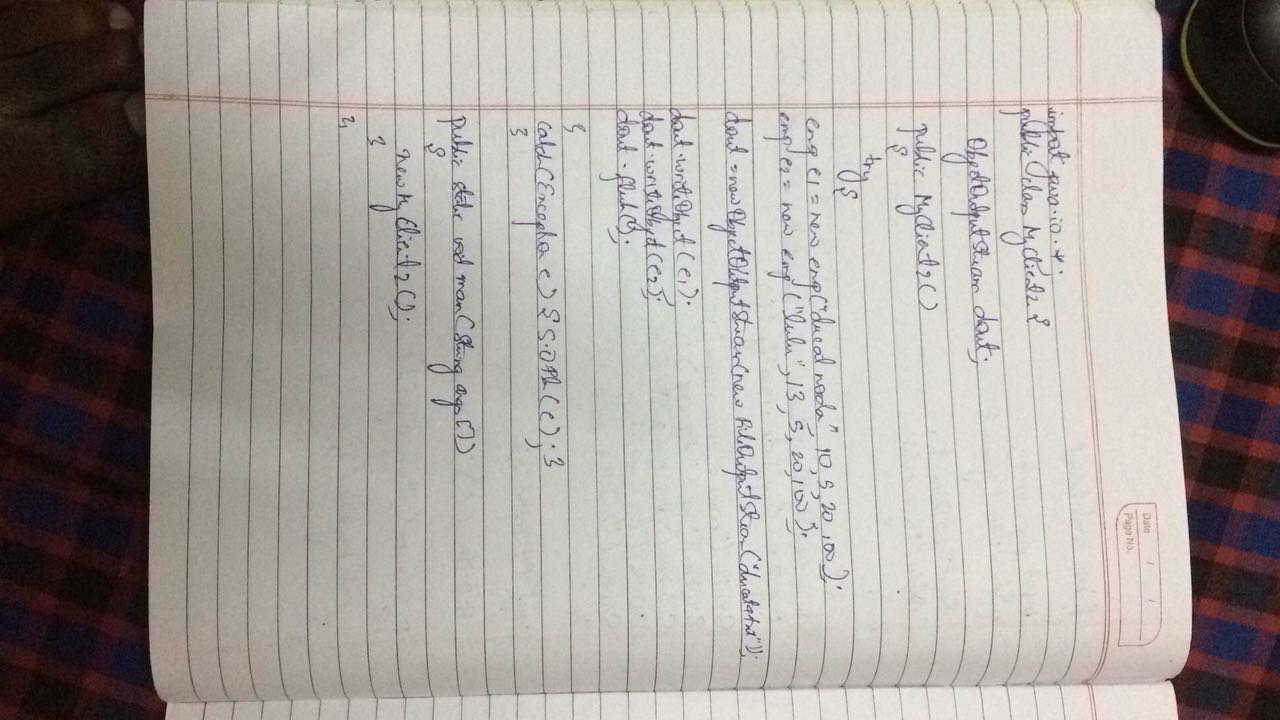 Date / /
Page No.
import java.io.*;
public class MyClient2 {
ObjectOutputStream dout;
public MyClient2()
{
try
{
emp e1 = new emp("ducat noida", 10, 5, 20, 100);
emp e2 = new emp ("lulu", 13, 5, 20, 100);
dout = new ObjectOutputStream(new FileOutputStream("ducat.txt"));
dout.writeObject(e1);
dout.writeObject(e2);
dout.flush();
}
catch(Exception e) { S.OPln(e); }
}
public static void main(String args[])
{
new MyClient2();
}
}